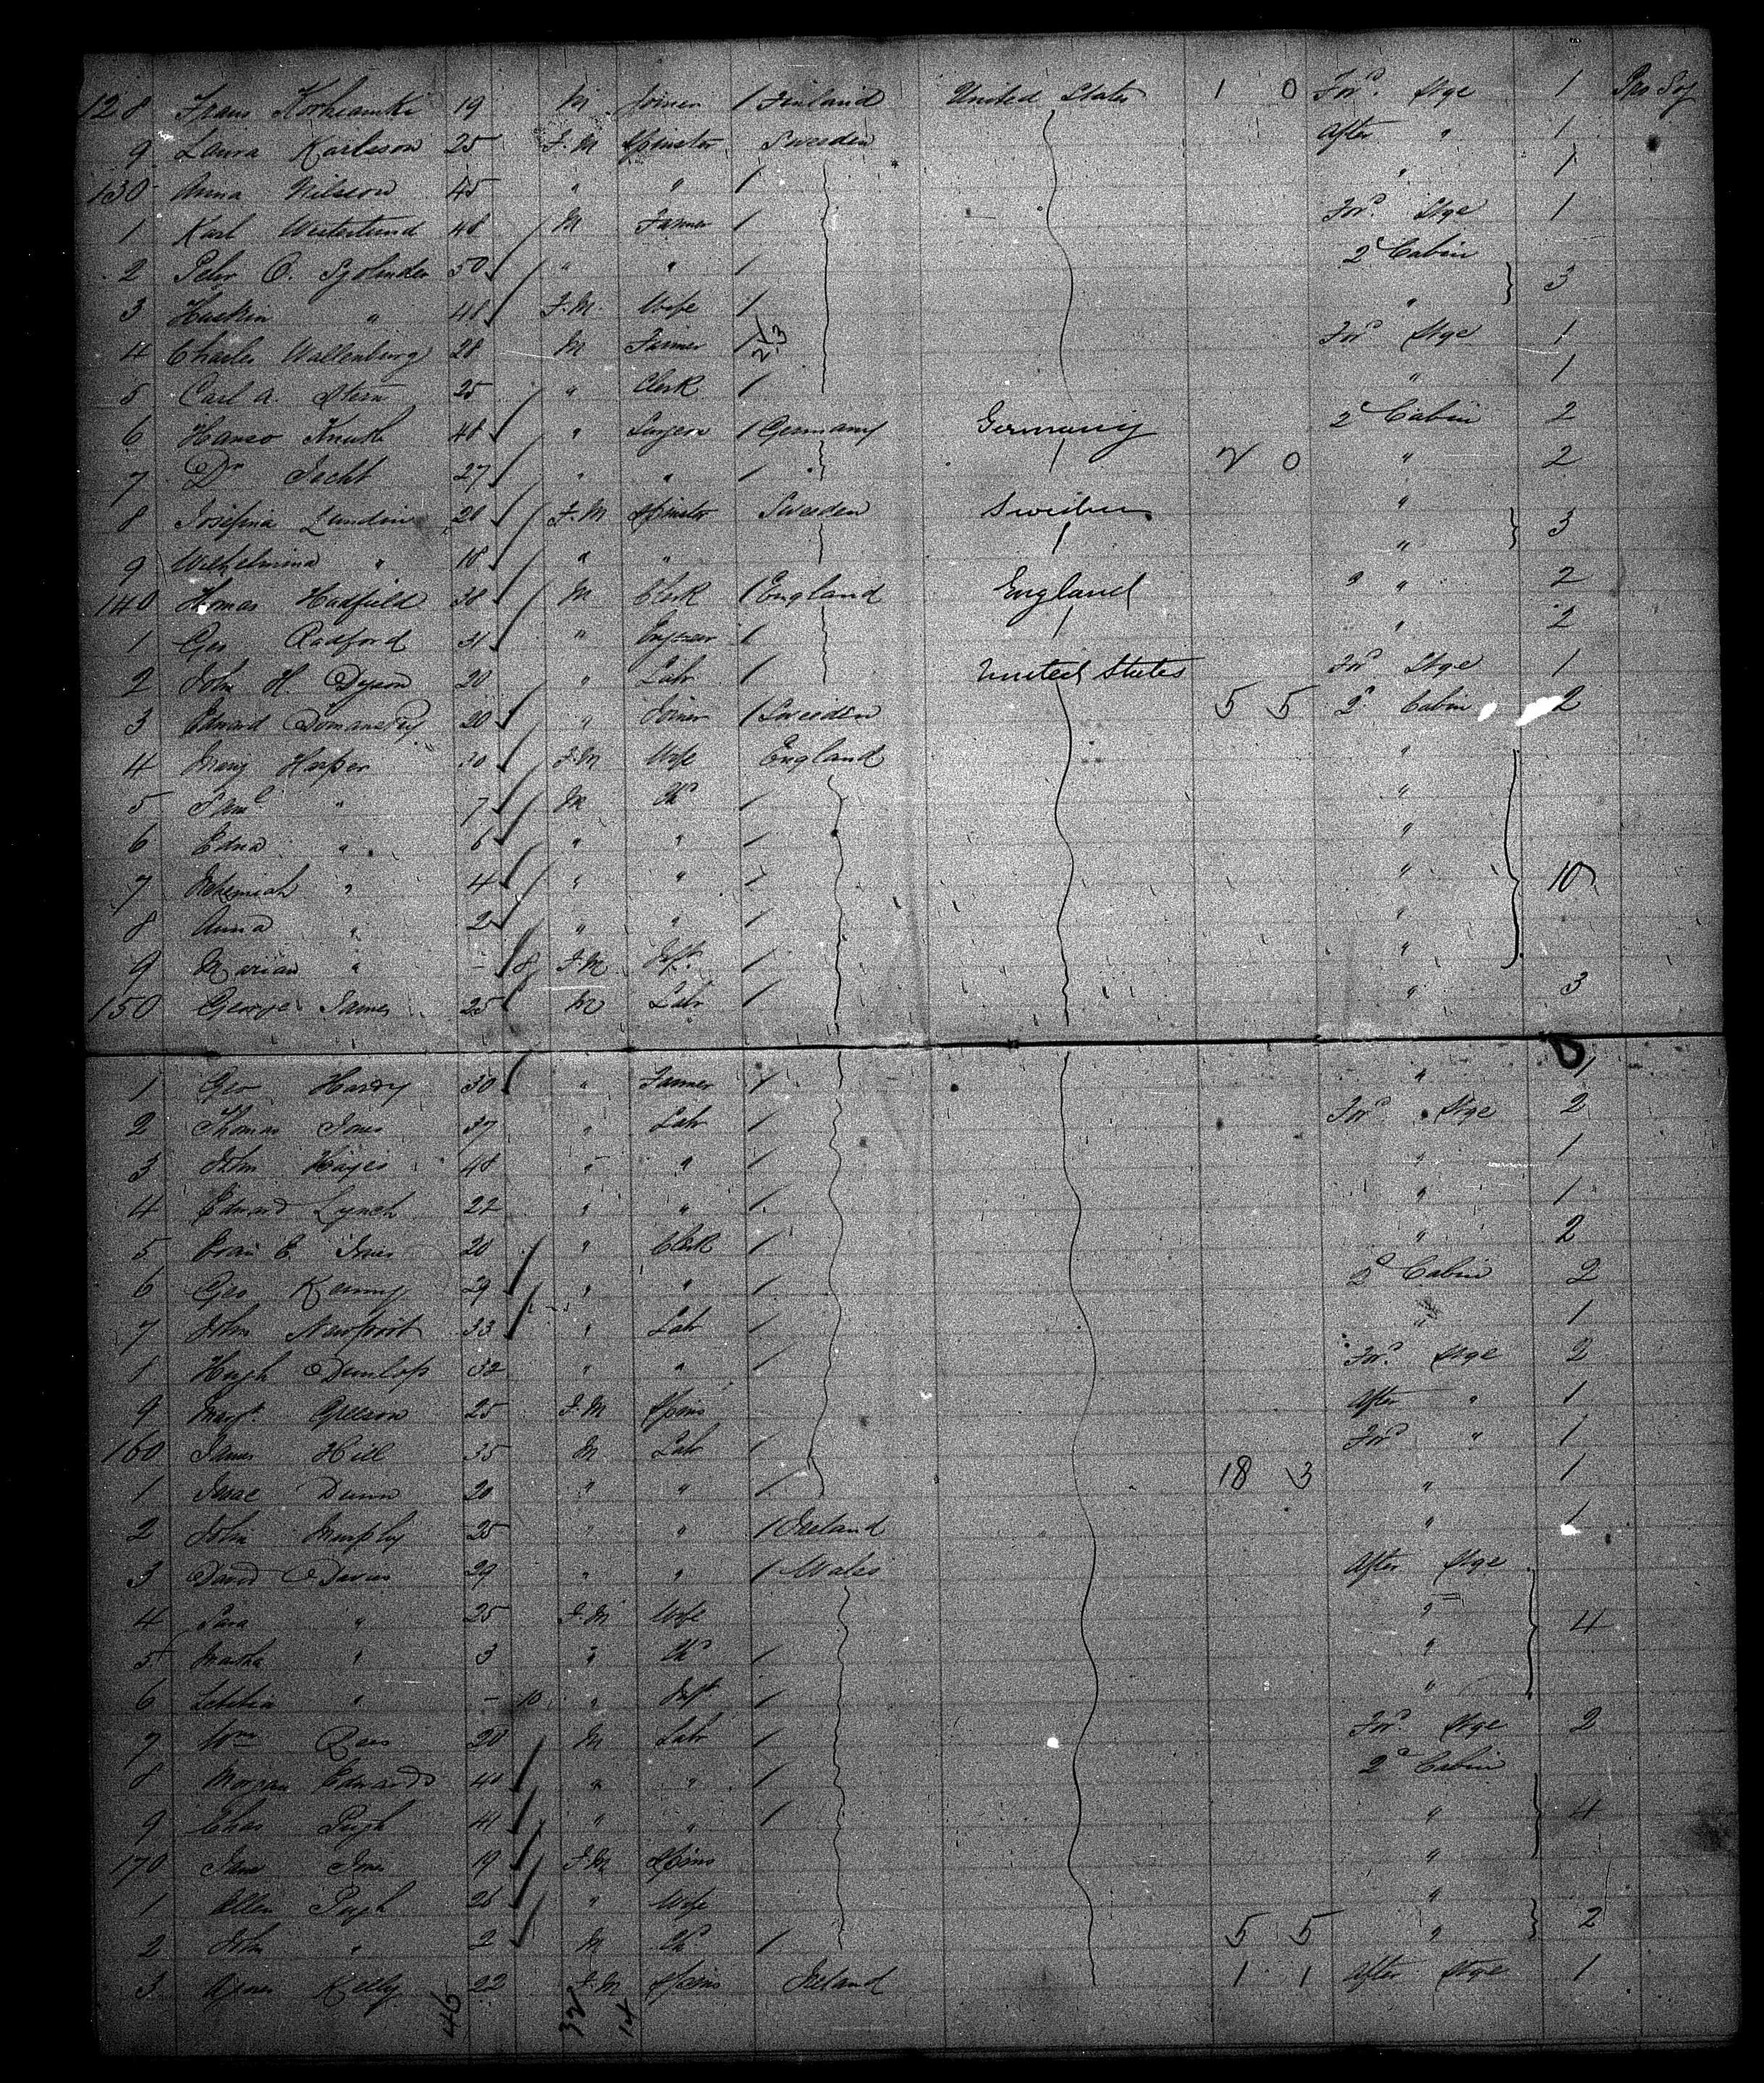 128 Frans 19 M Joiner / Finland United States 1 0 For^d Stge 1 Pro Soj
9 Laura Karlsson 25 F.M Spinster Sweeden After " 1
130 Anna Nilsson 45 " " / " 1
1 Karl Westerlund 48 / M Farmer / For^d Stge 1
2 Pehr O. Sjolinder 50 / " " / 2^d Cabin
3 " 48 / F.M. Wife / " } 3
4 Charles Wallenburg 28 M Farmer / For^d Stge 1
5 Carl A. Stern 25 " Clerk / " 1
6 48 / " / Germany Germany 2^d Cabin 2
7 D^r 27 / " " / 2 0 " 2
8 Josefina Lundin 20 / F.M Spinster Sweeden Sweden "
9 Wilhelmina " 18 / " " " } 3
140 Thomas Hadfield 38 / M Clerk / England England 2 " 2
1 Geo Radford 31 / " / " 2
2 John H. Dyson 20 " Labr / United States For^d Stge 1
3 Edward 20 / " Joiner / Sweeden 5 5 2^d Cabin 2
4 Mary Harper 30 / F.M Wife England "
5 Sam^l " 7 / M Ch^d / "
6 Edna " 6 / " " / "
7 Nehemiah " 4 / " " / " } 10
8 Anna " 2 / " " / "
9 Marian " - 8 F.M Inft. / "
150 George James 25 M Labr / " 3
1 Geo Hardy 30 " Farmer / " 1
2 Thomas Jones 37 " Labr / For^d Stge 2
3 John Hayes 48 " " / " 1
4 Edward Lynch 22 " " / " 1
5 Evan E. Jones 20 / " Clerk / " 2
6 Geo Kenny 29 / " " / 2^d Cabin 2
7 John Newport 33 / " Labr / " 1
8 Hugh Dunlop 32 " " / For^d Stge 2
9 Marg^t. Gleeson 25 F.M Spins After " 1
160 James Hill 35 M Labr / For^d " 1
1 Isaac Dunn 20 " " / 18 3 " 1
2 John Murphy 25 " " / Ireland " 1
3 David Davies 29 " " / Wales After Stge
4 Sara " 25 F.M Wife " } 4
5 Martha " 3 " Ch^d / "
6 Letitia " - 10 " Inft / "
7 W^m Rees 20 M Labr / For^d Stge 2
8 Morgan Edwards 40 / " " / 2^d Cabin
9 Chas Pugh 41 / " " / " } 4
170 Jane Jones 19 / F.M Spins "
1 Ellen Pugh 26 / " Wife "
2 John " 2 / M Ch^d / 5 5 " } 2
3 Agnes Kelly 22 F.M Spins Ireland 1 1 After Stge 1
46 32 14